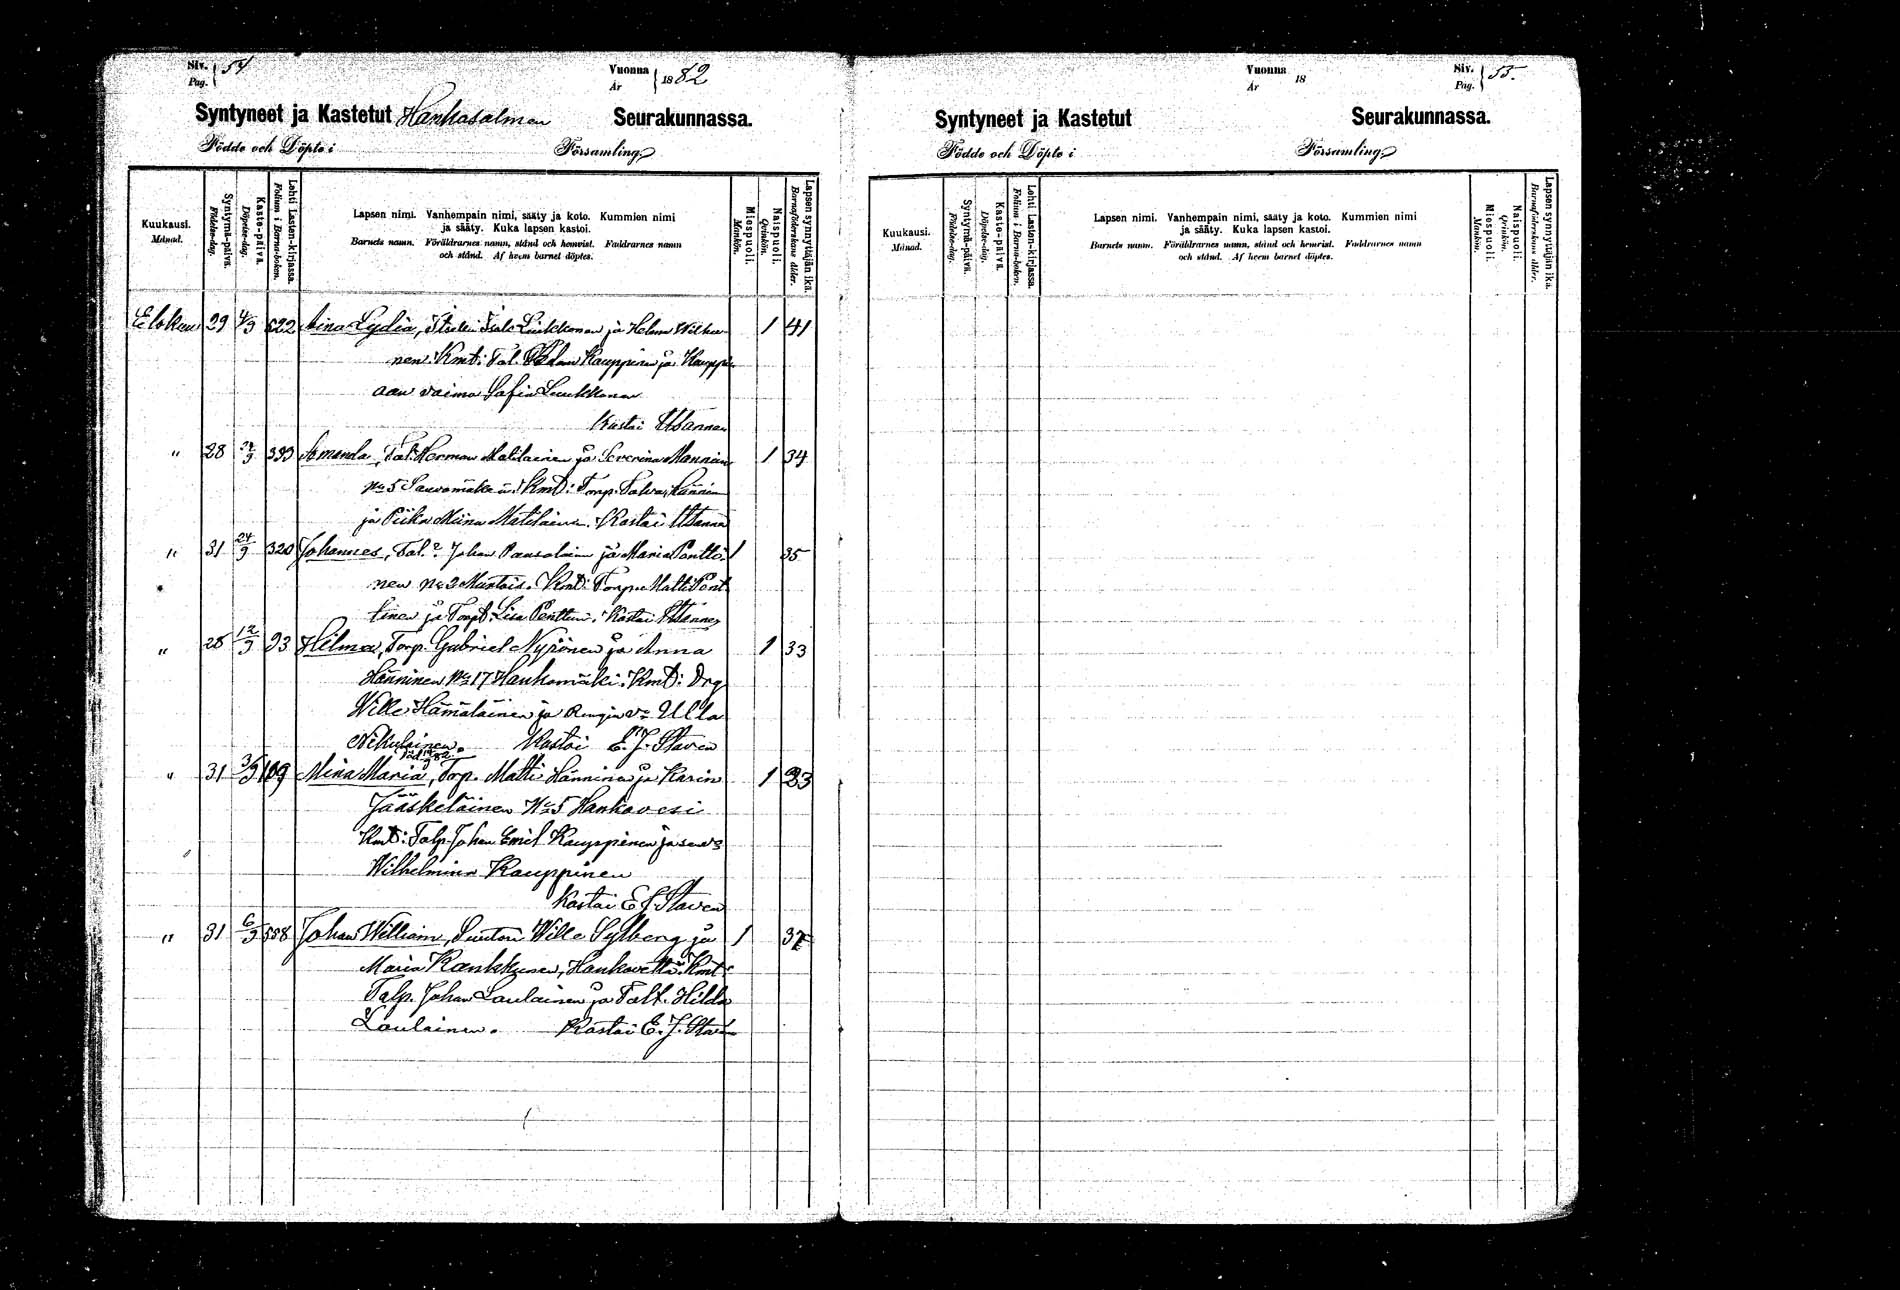 Siv. Pag. 54
Vuonna År 1882
Syntyneet ja Kastetut Hankasalmen Seurakunnassa.
Födde och Döpte i Församling
Kuukausi. Månad.
Syntymä-päivä. Födelse-dag.
Kaste-päivä. Döpelse-dag.
Lehti Lasten-kirjassa. Folium i Barna-boken.
Lapsen nimi. Vanhempain nimi, sääty ja koto. Kummien nimi
ja sääty. Kuka lapsen kastoi.
Barnets namn. Föräldrarnes namn, stånd och hemvist. Faddrarnes namn
och stånd. Af hvem barnet döptes.
Miespuoli. Mankön.
Naispuoli. Qvinkön.
Lapsen synnyttäjän ikä. Barnaföderskans ålder.
Elokuu 29 4/9 522 Aina Lydia, ja Helena 1 41
nen. Kmt: Tal. Kauppinen ja Kauppi
aan vaimo Sofia
Kastai
" 28 24/9 393 Amanda, Tal: Herman Matilainen ja Severina Manninen 1 34
No 5 Kmt: Torp.
ja Piika Miina Matilainen. Kastai
" 31 24/9 320 Johannes, Tal. Johan ja Maria Pentti- 1 35
nen No 2 Kmt: Torp. Matti Pent
tinen ja Lisa Penttinen. Kastai
" 28 12/9 93 Hilma, Torp. Gabriel Nyrönen ja Anna 1 33
Hänninen No 17 Hankamäki. Kmt: Drg
Wille Hämäläinen ja Rengin vo Ulla
Nikulainen. Kastai E. J. Staven
" 31 3/9 109 Mina Maria, Torp. Matti Hänninen ja Karin 1 23
Jääskeläinen No 5 Hankavesi
Kmt: Talp. Johan Emil Kauppinen ja
Wilhelmina Kauppinen
Kastai E J Staven
" 31 6/9 558 Johan William, Suutari Wille Sylberg ja 1 37
Maria Kankkunen, Kmt:
Talp. Johan Laulainen ja Talt. Hilda
Laulainen. Kastai E. J. Staven
Vuonna År 18
Siv. Pag. 55.
Syntyneet ja Kastetut Seurakunnassa.
Födde och Döpte i Församling
Kuukausi. Månad.
Syntymä-päivä. Födelse-dag.
Kaste-päivä. Döpelse-dag.
Lehti Lasten-kirjassa. Folium i Barna-boken.
Lapsen nimi. Vanhempain nimi, sääty ja koto. Kummien nimi
ja sääty. Kuka lapsen kastoi.
Barnets namn. Föräldrarnes namn, stånd och hemvist. Faddrarnes namn
och stånd. Af hvem barnet döptes.
Miespuoli. Mankön.
Naispuoli. Qvinkön.
Lapsen synnyttäjän ikä. Barnaföderskans ålder.